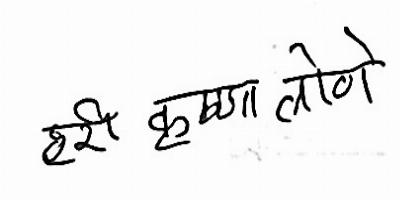 हरी कृष्णा लोणे